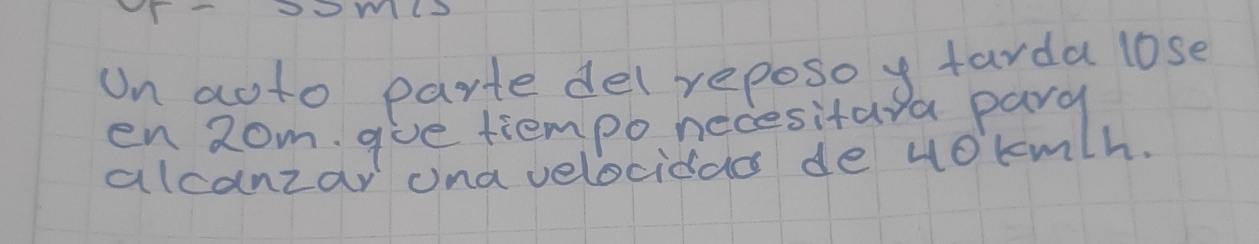 Un auto parte del reposo y tarda 10se
en 20m. que tiempo necesitara para
alcanzar una velocidad de 40km/h.